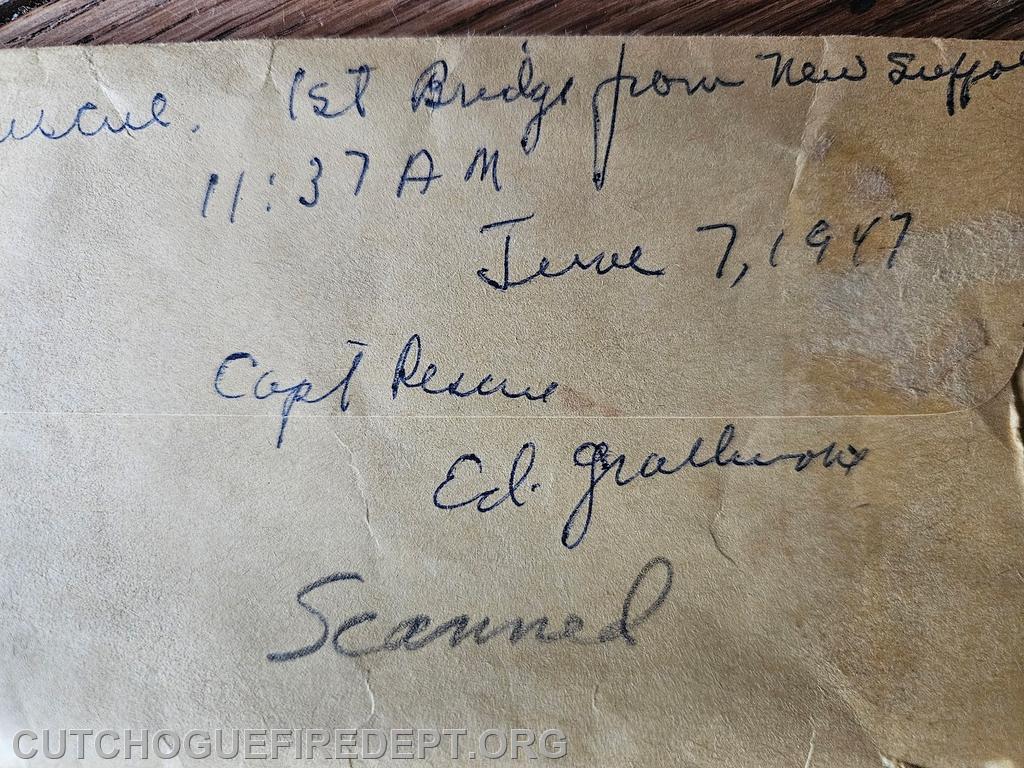 1st Bridge from New Suffol
11:37 AM
June 7, 1947
Capt Rescue
Ed.
Scanned
CUTCHOGUEFIREDEPT.ORG